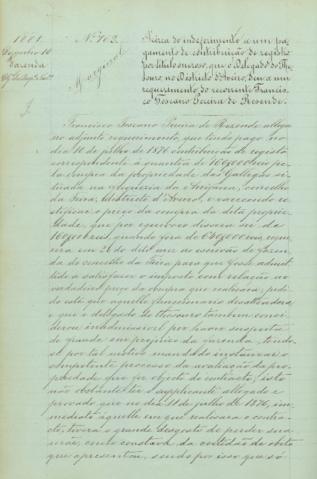 1881
Dezembro 10
Fazenda
Nº 703.
Original
Ácerca do indeferimento a um pa-
gamento de contribuição de registo
por titulo oneroso, que o Delegado do The-
souro no Districto d'Aveiro, deu a um
requerimento do recorrente Francis-
co Toscano Pereira de Resende.
Francisco Toscano Pereira de Rezende allega
no adjunto requerimento, que tendo pago no
dia 10 de julho de 1876 contribuição de registo,
correspondente á quantia de 160$000 reis pe-
la compra da propriedade das Gallegas si-
tuada na freguezia da concelho
da Feira, districto d'Aveiro, e carecendo re-
ctificar o preço da compra da dita proprie-
dade, que por equivoco dissera ser da
160$000 reis, quando fôra de reque-
rera em 26 do dito mez ao escrivão de Fazen-
da do concelho da Feira para que fosse admit-
tido a satisfazer o imposto com relação ao
verdadeiro preço da compra que realisara, pedi-
do este que aquelle funccionario desattendera
e que o delegado do thesouro tambem consi-
derou inadmissivel por haver suspeita
de fraude em prejuizo da fazenda, tendo-
se por tal motivo mandado instaurar o
competente processo da avaliação da pro-
priedade que foi objecto do contracto, isto
não obstante ter o supplicante allegado e
provado que no dia 11 de julho de 1876, im-
mediato áquelle em que realisara o contra-
cto, tivera o grande desgosto de perder sua
mãe, como constava da certidão de obito
que apresentou, sendo por isso que só